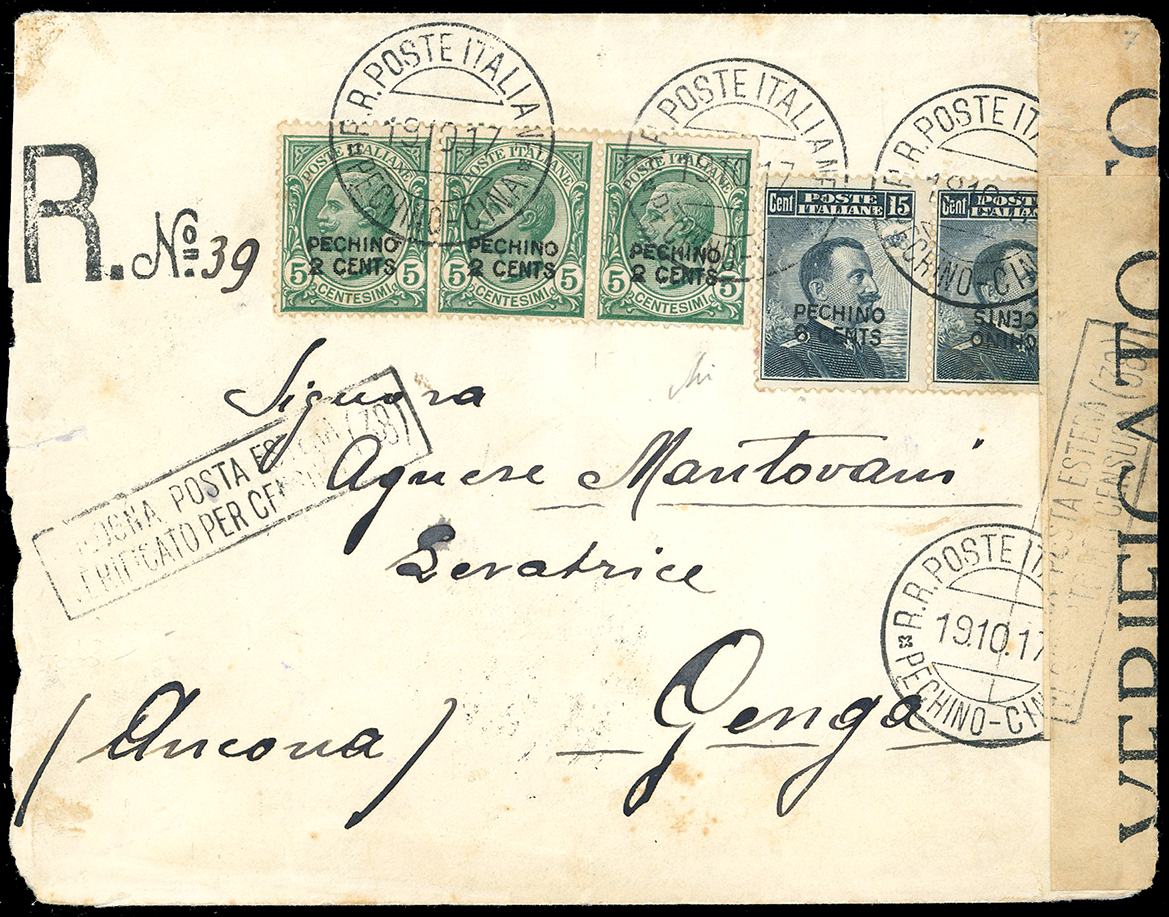 R.R. POSTE ITALIANE
19.10.17
PECHINO-CINA
R.R. POSTE ITALIANE
19.10.17
PECHINO
R.R. POSTE ITA
19.10
PECHINO-CINA
R. No. 39
POSTE ITALIANE
PECHINO
2 CENTS
5 CENTESIMI 5
POSTE ITALIANE
PECHINO
2 CENTS
5 CENTESIMI 5
POSTE ITALIANE
PECHINO
2 CENTS
5 CENTESIMI 5
Cent POSTE ITALIANE 15
PECHINO
6 CENTS
Cent POSTE ITALIANE
CENTS
CHINO
Signora
Agnese Mantovani
Levatrice
Genga
(Ancona)
OGNA POSTA ESTERA (38)
VERIFICATO PER CENSURA (38)
R.R. POSTE ITA
19.10.17
PECHINO-CIN
POSTA ESTERA (38)
CENSURA (38)
VERIFICATO